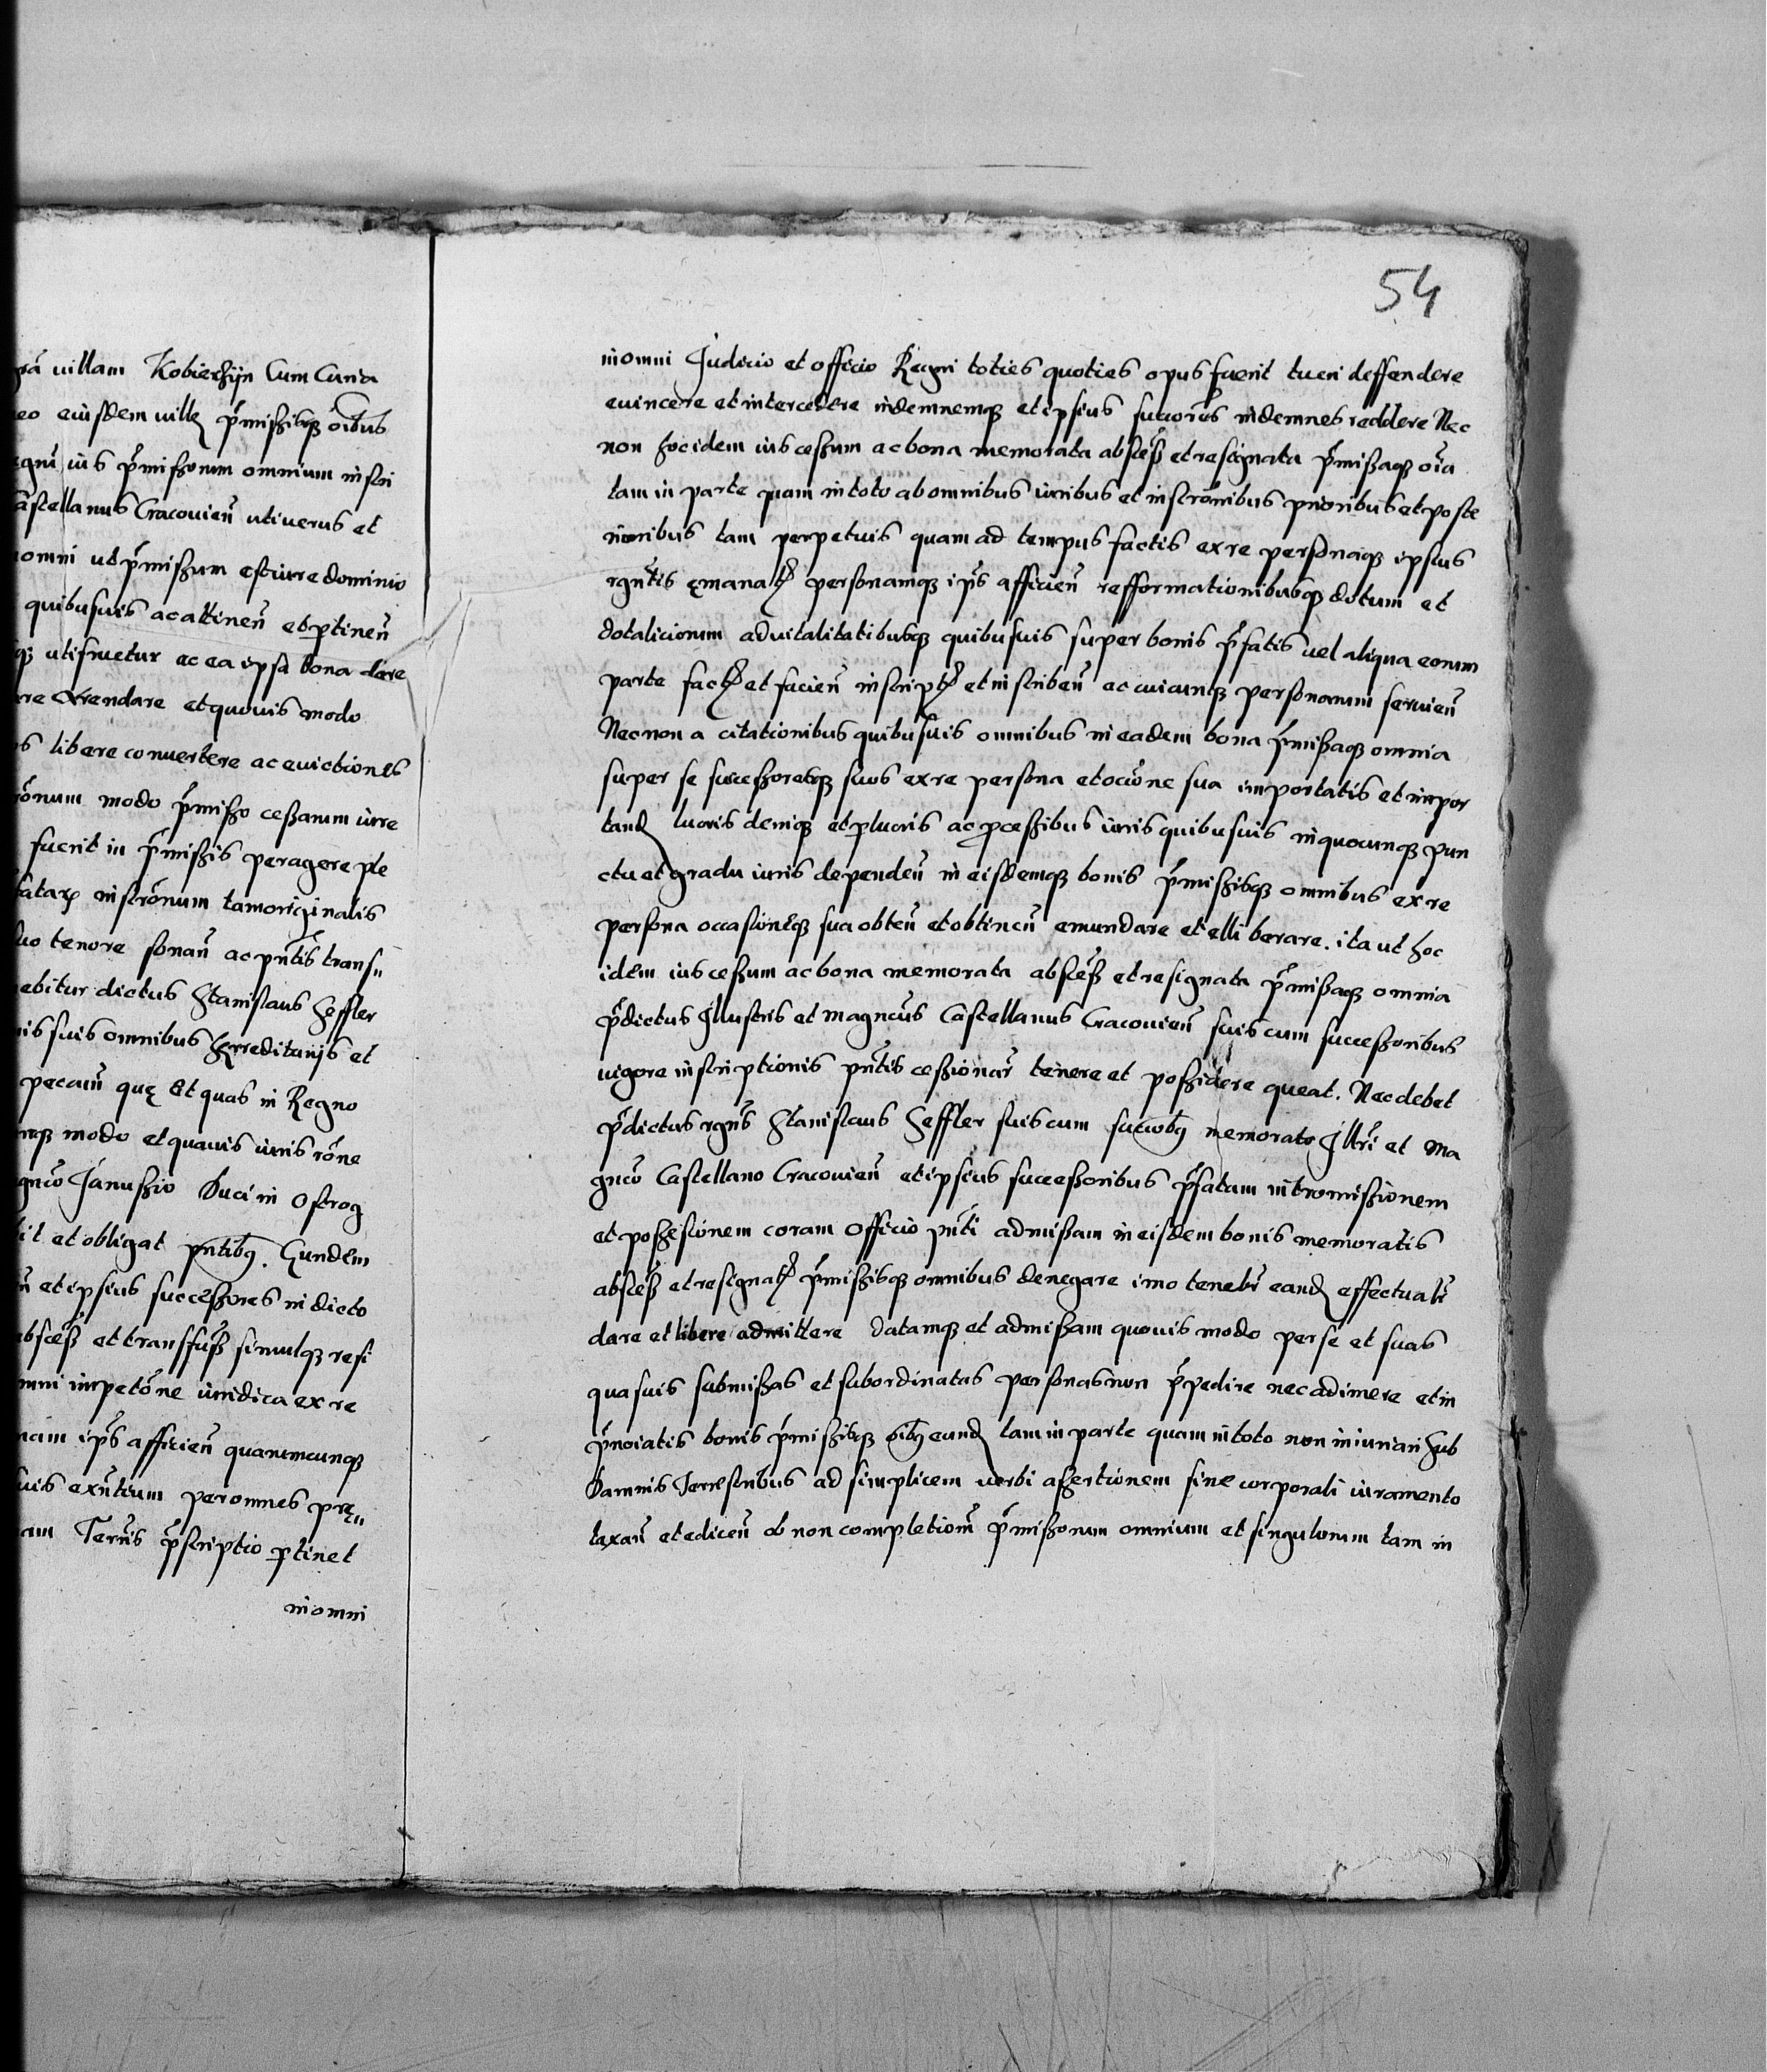 grã uillam Kobierzijn Cum Curia
eo eiusdem uillę p̃missisq₃ oĩbus
ius p̃missorum omnium inscri
Castellanus Cracouien̄ uti uerus et
omni ut p̃missum est iure dominio
quibusuis ac attinen̄ et ꝑtinen̄
utifruetur ac ea ipsa bona dare
Arrendare et quouis modo
libere conuertere ac euictiones
modo p̃misso cessarum iure
fuerit in p̃missis peragere ple
inscrōnum tam originalis
suo tenore sonan̄ ac pñtis trans,,
ebitur dictus Stanislaus Heffler
suis omnibus Hęreditarijs et
pecun̄ quę Et quas in Regno
modo et quauis iuris rõne
Janussio Duci in Ostrog
et obligat pñtibꝫ. Eundem
et ipsius successores in dicto
absceß et transfuß simulq₃ resi
impetõne iuridica ex re
ip̃s afficien̄ quarumcunq₃
exñtium per omnes prę,,
Terr̃is p̃scriptio ꝑtinet
in omni
54
in omni Judicio et officio Regni toties quoties opus fuerit tueri deffendere
euincere et intercedere indemnemq₃ et ipsius succores indemnes reddere Nec
non hoc idem ius cessum ac bona memorata absceß et resignata p̃missaq₃ oĩa
tam in parte quam in toto ab omnibus iuribus et inscrõnibus prioribus et poste
rioribus tam perpetuis quam ad tempus factis ex re personaq₃ ipsius
rgñtis ęmanat̃ personamq₃ ip̃s afficien̄ refformationibusq₃ dotum et
dotaliciorum aduitalitatibusq₃ quibusuis super bonis p̃fatis uel aliqua eorum
parte fact̃ et facien̄ inscript̃ et inscriben̄ ac cuiuscunq₃ personarum seruien̄
Necnon a citationibus quibusuis omnibus in eadem bona p̃missaq₃ omnia
super se successoresq₃ suos ex re persona et occõne sua importatis et impor
tand̨ lucris deniq₃ et ꝑlucris ac ꝓcessibus iuris quibusuis in quocunq₃ pun
ctu et gradu iuris dependen̄ in eisdemq₃ bonis p̃missisq₃ omnibus ex re
persona occasioneq₃ sua obten̄ et obtinen̄ emundare et elliberare. ita ut hoc
idem ius cessum ac bona memorata absceß et resignata p̃missaq₃ omnia
p̃dictus Jllustris et magñcus Castellanus Cracouien̄ suis cum successoribus
uigore inscriptionis pñtis cessionar̃ tenere et possidere queat. Nec debet
p̃dictus rgñs Stanislaus Heffler suis cum succobꝫ memorato Jllr̃i et Ma
gñco Castellano Cracouien̄ et ipsius successoribus p̃fatam intromissionem
et possesionem coram Officio pñti admissam in eisdem bonis memoratis
absceß et resignat̃ p̃missisq₃ omnibus denegare imo tenebr̃ eand̨ effectualr̃
dare et libere admittere datamq₃ et admissam quouis modo per se et suas
quasuis submissas et subordinatas personas non p̃pedire nec adimere et in
p̃noiatis bonis p̃missisq₃ oĩbꝫ eund̨ tam in parte quam in toto non iniuriari Sub
Damnis Terrestribus ad simplicem uerbi assertionem sine corporali iuramento
taxan̄ et edicen̄ ob non completion̄ p̃missorum omnium et singulorum tam in